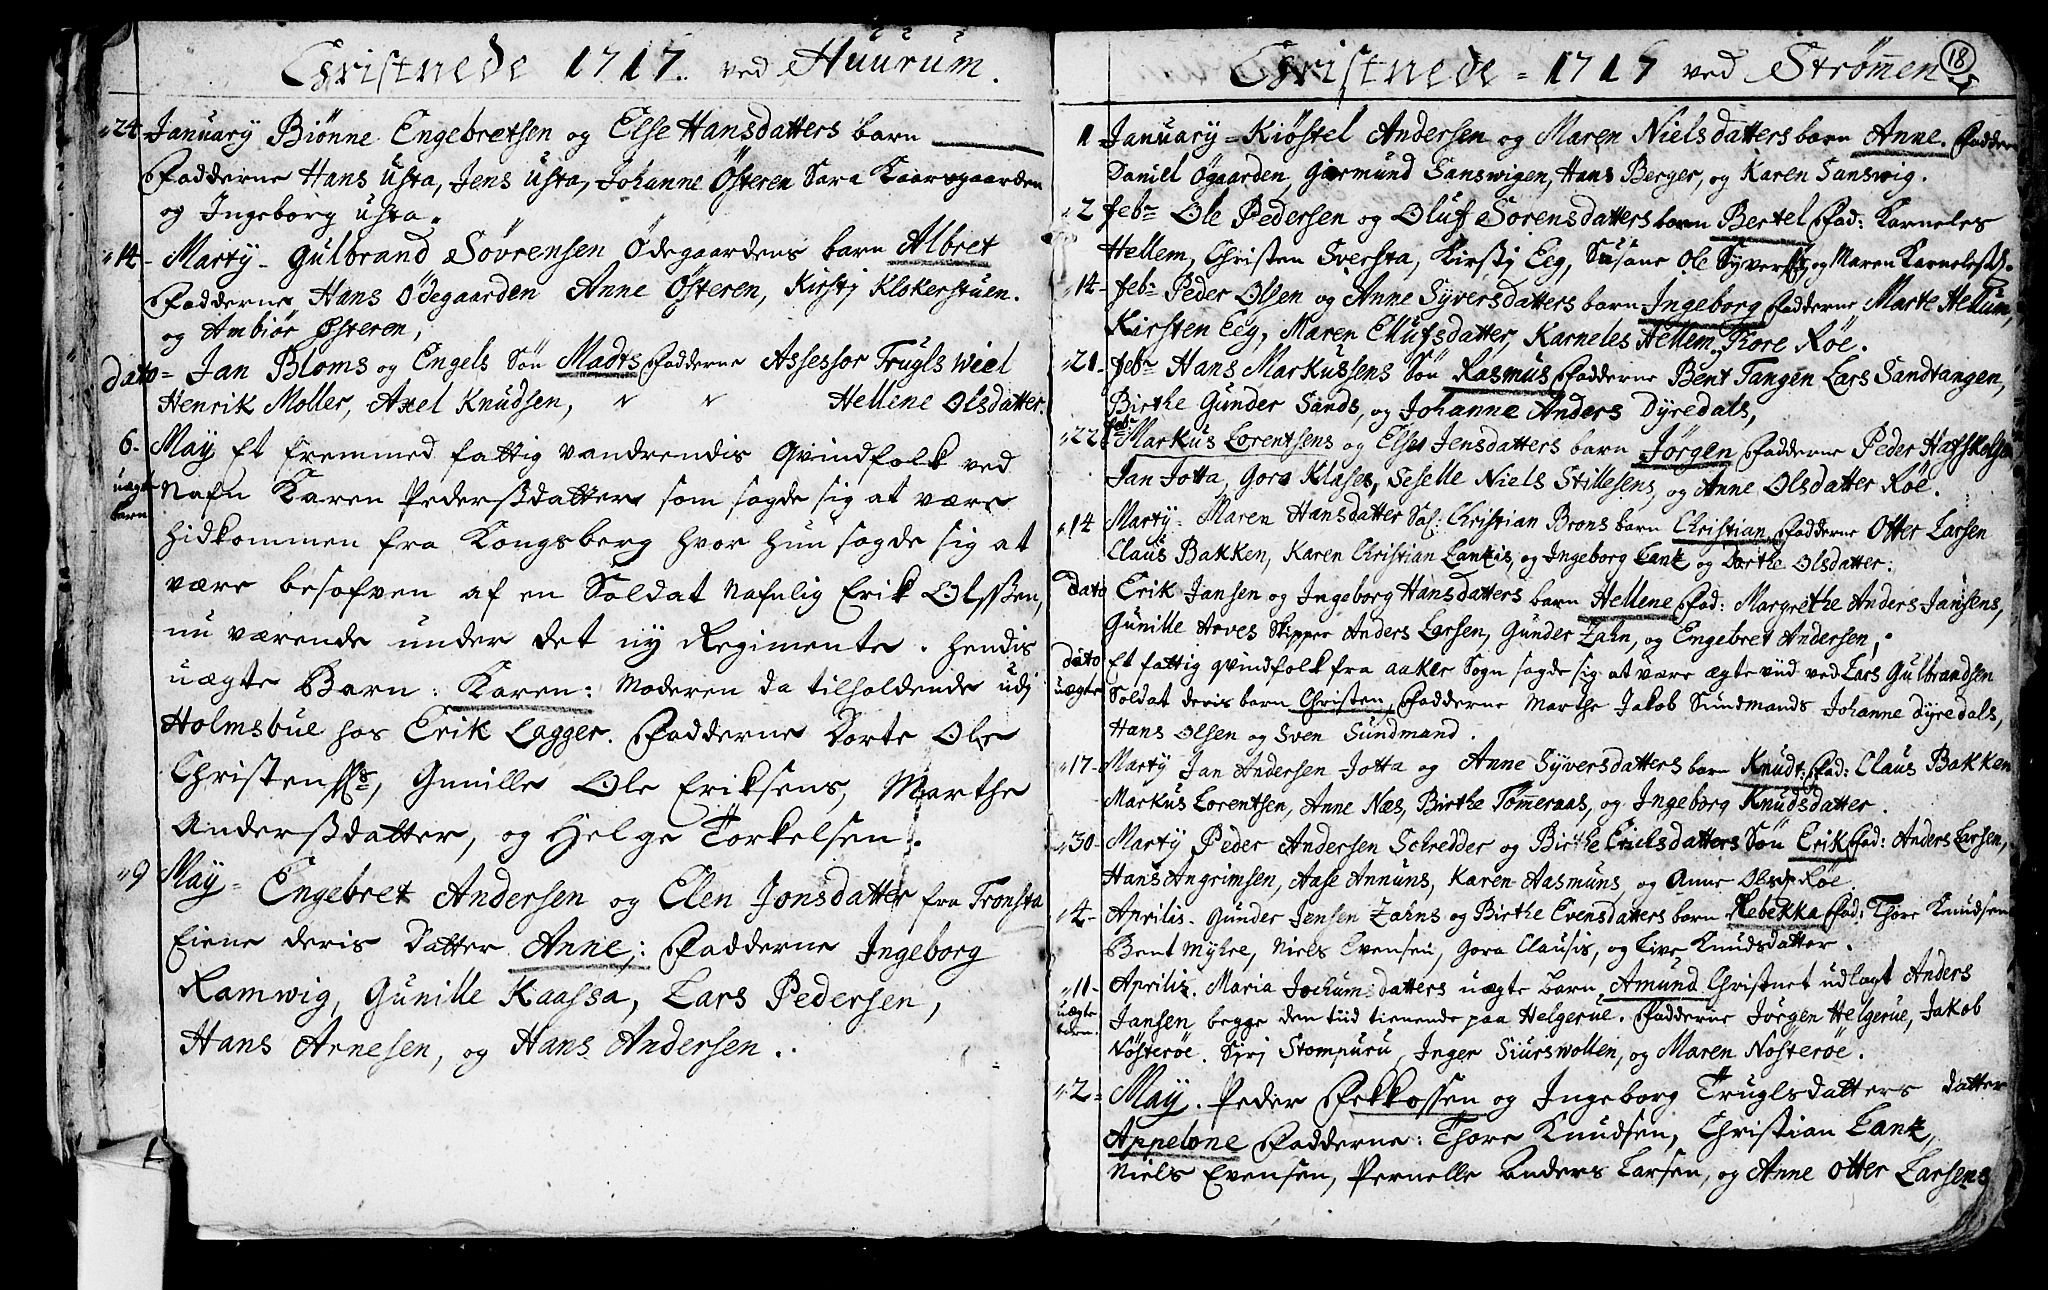 Christnede 1717. ved Huurum.
24 January Biönne Engebretsen og Else Hansdatters barn
Fadderne Hans Usta, Jens Usta, Johanne Österen Sara Kaarsgaarden
og Ingeborg Usta.
14 - Marty - Gulbrand Sövrensen Ödegaardens barn Albret
Fadderne Hans Ödegaarden Anne Österen, Kirsty Klokerstuen.
og Ambiör Österen,
dato = Jan Bloms og Engels Sön Madts Fadderne Assessor Trugls Wiel
Henrik Moller, Axel Knudsen, Hellene Olsdatter.
6. May Et fremmed fattig vandrendis Qvindfolk ved
uægte Nafn Karen Pederssdatter som sagde sig at være
barn hidkommen fra Kongsberg hvor hun sagde sig at
være besofven af en Soldat Nafnlig Erik Olssen,
nu værende under det ny Regimente. hendis
uægte Barn: Karen: Moderen da tilholdende udj
Holmsbue hos Erik Lagger. Fadderne Dorte Ole
Christenss, Gunille Ole Eriksens, Marthe
Anderssdatter, og Helge Torkelsen.
9 May = Engebret Andersen og Elen Jonsdatter fra Tronsta
Eiene deris Datter Anne,: Fadderne Ingeborg
Ramwig, Gunille Kaassa, Lars Pedersen,
Hans Arnesen, og Hans Andersen.
18
Christnede = 1717 ved Strömen
1 January = Kiöstel Andersen og Maren Nielsdatters barn Anne. Fadderne
Daniel Ögaarden, Giermund Sanswigen, Hans Berger, og Karen Sanswig.
2 feb Ole Pedersen og Oluf Sorensdatters barn Bertel Fad: Karneles
Hellem, Christen Sversta, Kirsty Eeg, Susane Ole Syvers og Maren Karneless.
14 - feb Peder Olsen og Anne Syversdatters barn Ingeborg Fadderne Marte Hellum,
Kirsten Eeg, Maren Ellufsdatter, Karneles Hellem, Tore Röe.
21 - feb Hans Markussens Sön Rasmus Fadderne Bent Tangen Lars Sandtangen,
Birthe Gunder Sands, og Johanne Anders Dyredals,
22 feb Markus Lorentsens og Else Jensdatters barn Jörgen Fadderne Peder
Jan Jotta, Gora Klases, Seselle Niels Stillesens, og Anne Olsdatter Röe.
14 Marty - Maren Hansdatter Sal: Christian Brons barn Christian, Fadderne Otter Larsen
Claus Bakken, Karen Christian Lankis, og Ingeborg Lank og Dorthe Olsdatter.
dato Erik Jansen og Ingeborg Hansdatters barn Hellene Fad: Margrethe Anders Jansens,
Gunille Arves Skipper Anders Larsen, Gunder Zahn, og Engebret Andersen,
dato Et fattig qvindfolk fra Aaker Sogn sagde sig at være ægte viid ved Lars Gulbrandsen
uægte Soldat deris barn Christen, Fadderne Marthe Jakob Sundmands Johanne Dyredals,
Hans Olsen og Sven Sundmand.
17 - Marty Jan Andersen Jotta og Anne Syversdatters barn Knudt: Fad: Claus Bakken
Markus Lorentsen, Anne Næs, Birthe Tömeraas, og Ingeborg Knudsdatter.
30 - Marty Peder Andersen Schredder og Birthe Erichsdatters Sön Erik Fad: Anders Larsen,
Hans Angrimsen, Aase Annuns, Karen Aasmuns, og Anne Röe
4 - Aprilis - Gunder Jensen Zahns og Birthe Evensdatters barn Rebekka Fad: Thore Knudsen
Bent Myhre, Niels Evensen, Gora Clausis, og Live Knudsdatter.
11 - Aprilis. Maria Jochumsdatters uægte Barn Amund Christnet udlagt Anders
uægte Jansen begge den tiid tienende paa Helgerue. Fadderne Jörgen Helgerue, Jakob
Nösteröe. Siri Stompuru, Inger Siurswollen, og Maren Nosteröe.
2 = May. Peder Fekkossen og Ingeborg Truglsdatters datter
Appelone Fadderne: Thore Knudsen, Christian Lank,
Niels Evensen, Pernelle Anders Larsen, og Anne Otter Larsens